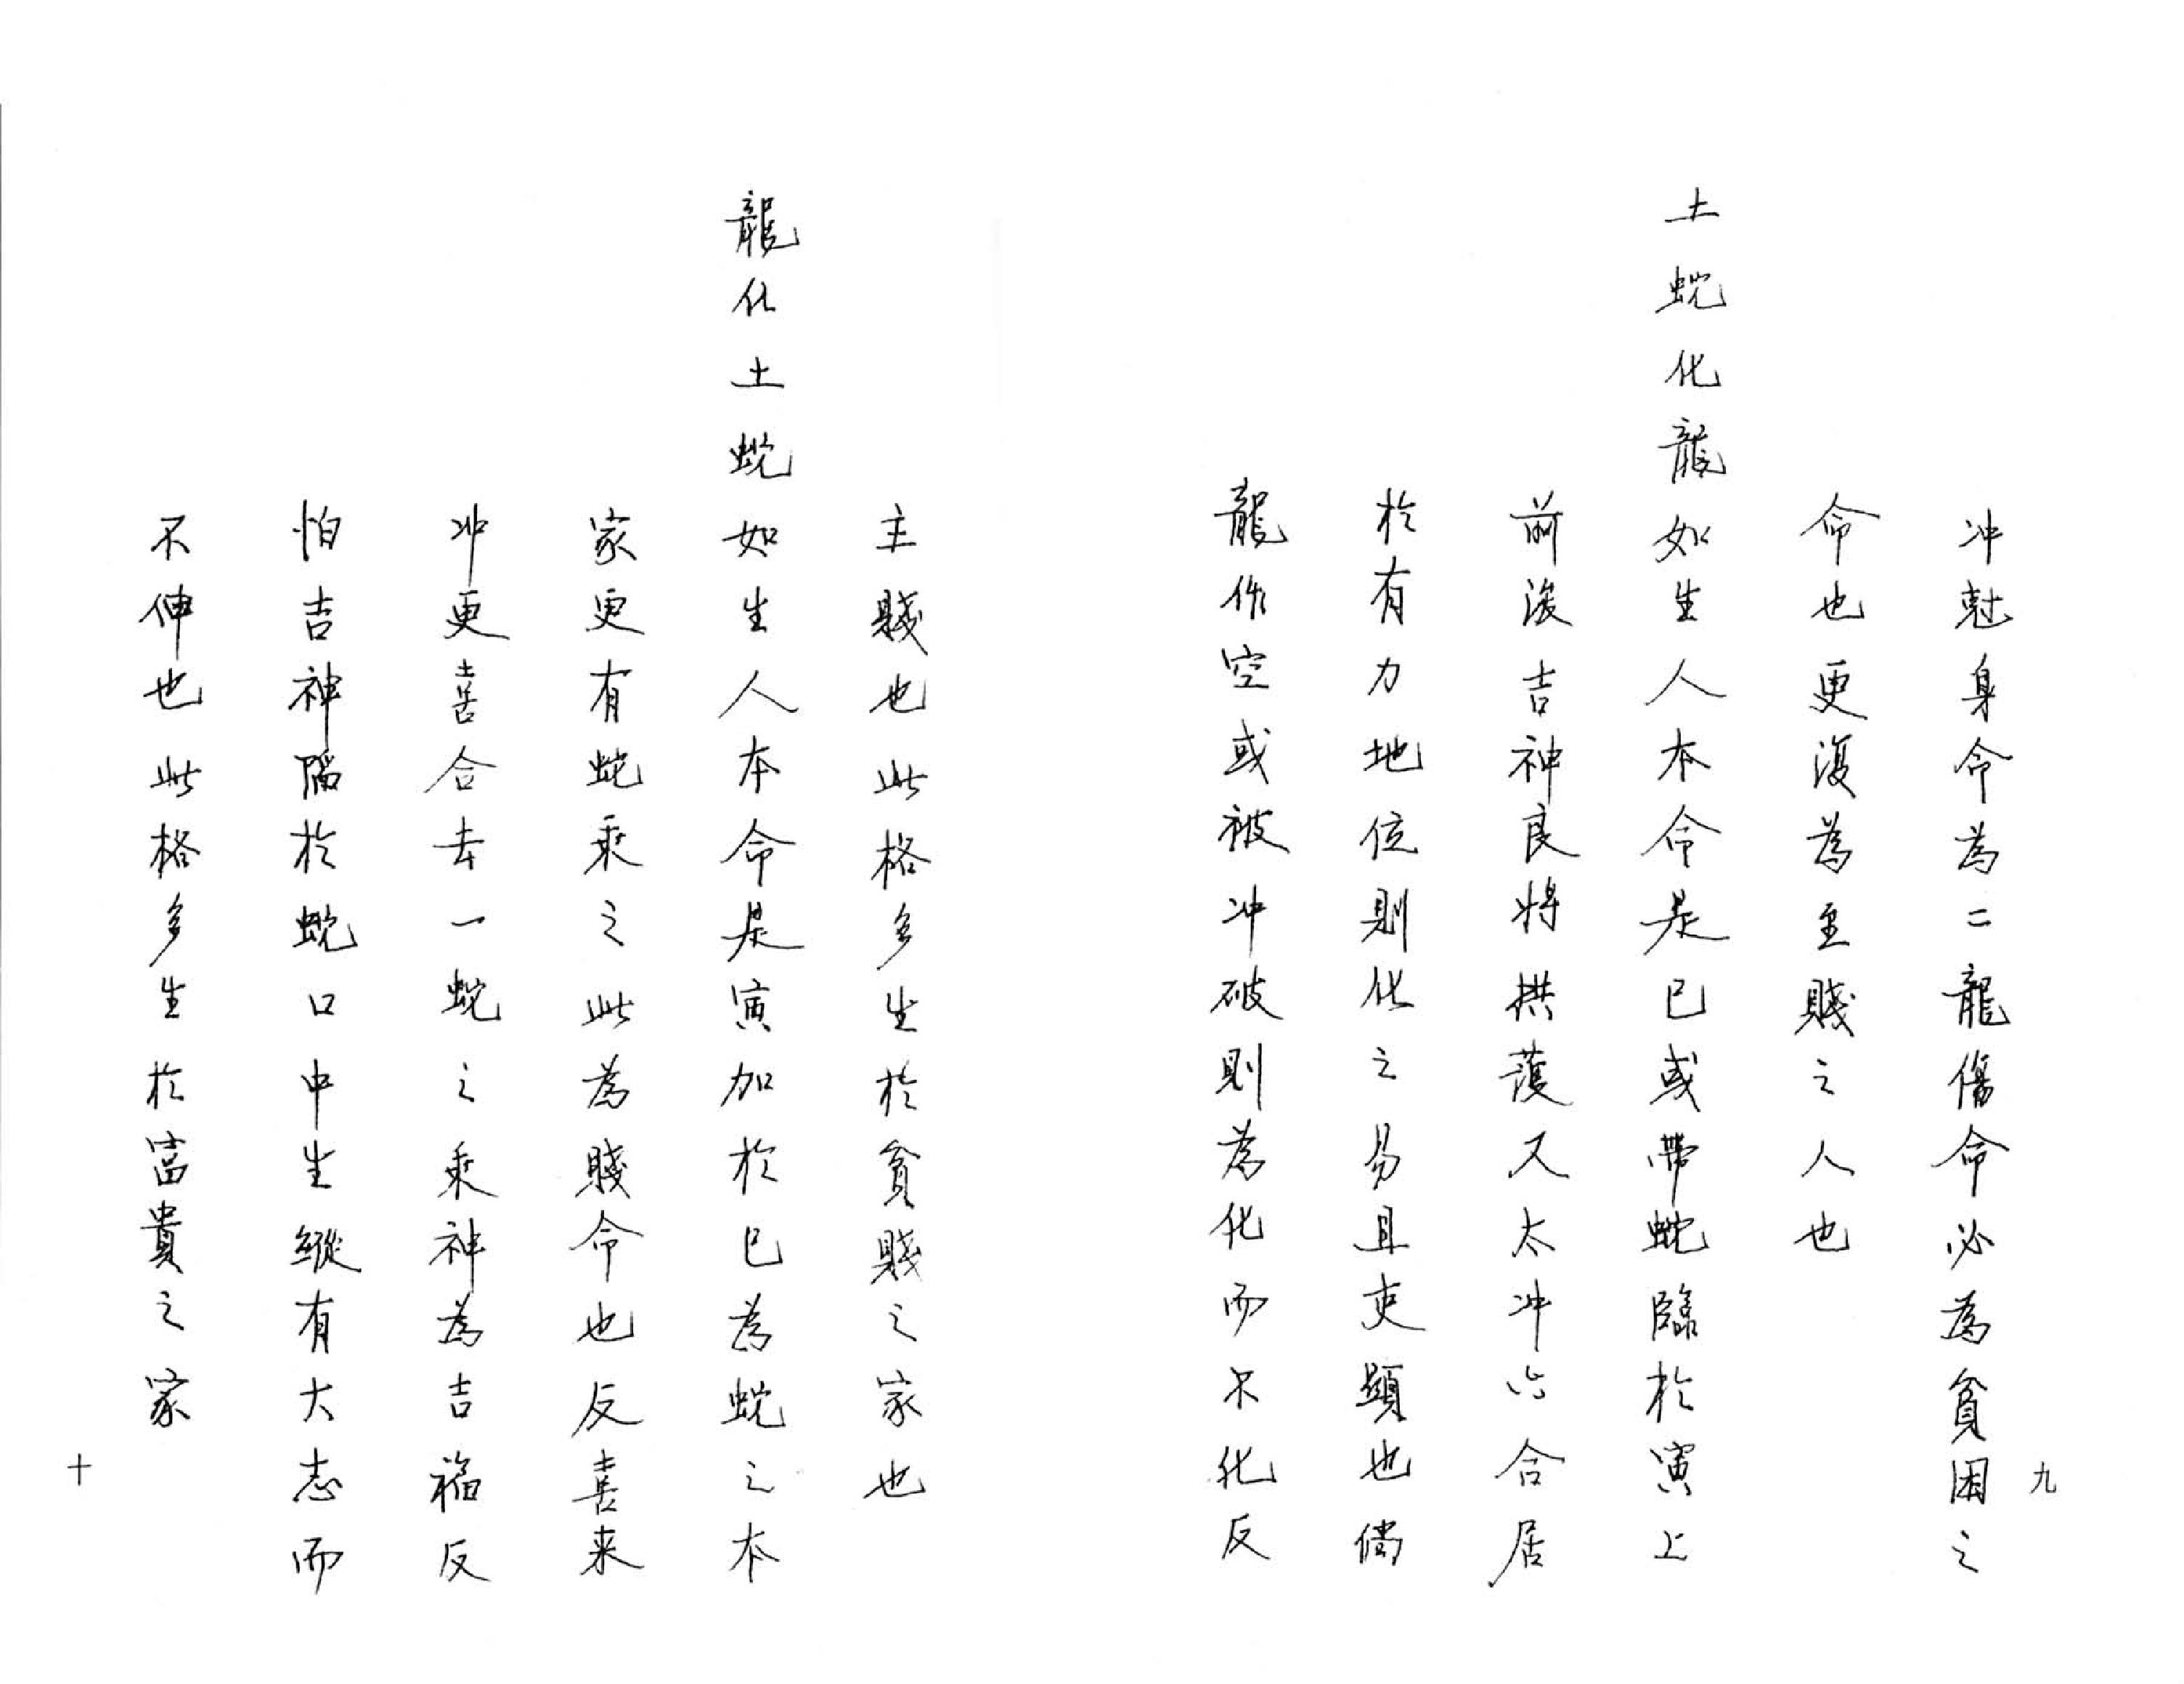 冲尅身命為二龍傷命必為貧困之
九
命也更復為至賤之人也
土蛇化龍如生人本命是巳或帶蛇臨於寅上
前後吉神良將拱護又太冲六合居
於有力地位則化之易且更顯也倘
龍作空或被冲破則為化而不化反
主賤也此格多生於貧賤之家也
龍化土蛇如生人本命是寅加於巳為蛇之本
家更有蛇乘之此為賤命也反喜来
冲更喜合去一蛇之乘神為吉福反
怕吉神陷於蛇口中生縱有大志而
不伸也此格多生於富貴之家
十